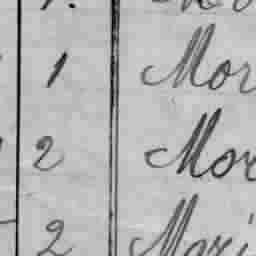 1 Mor
2 Mor
2 Mari